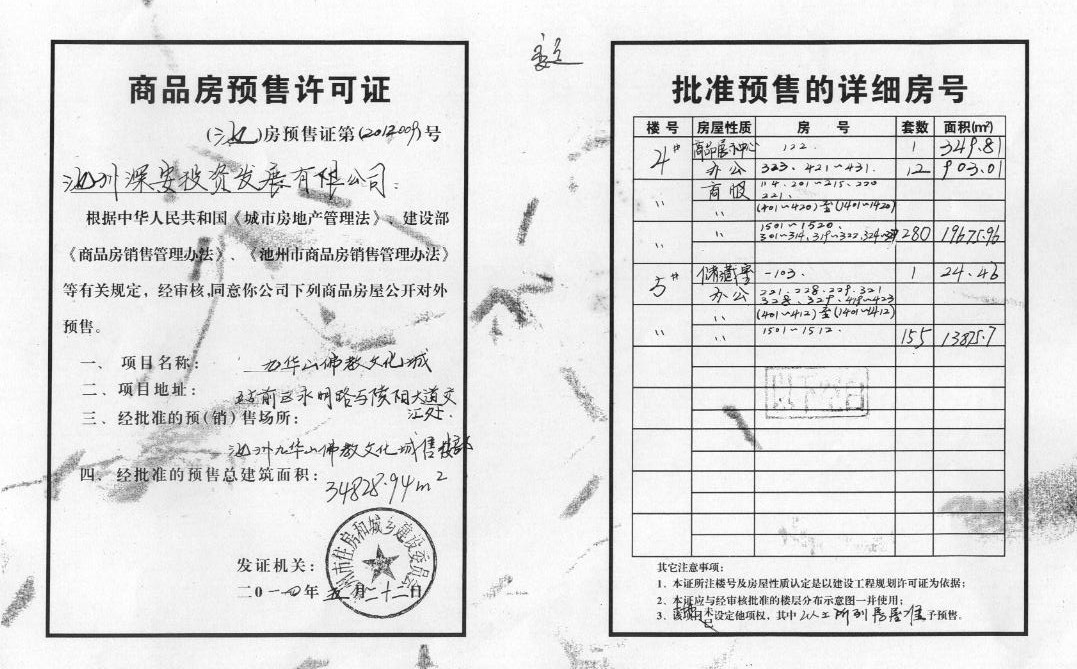 商品房预售许可证
(池)房预售证第(2012009)号
池州深安投资发展有限公司：
根据中华人民共和国《城市房地产管理法》、建设部
《商品房销售管理办法》、《池州市商品房销售管理办法》
等有关规定，经审核，同意你公司下列商品房屋公开对外
预售。
一、 项目名称： 九华山佛教文化城
二、项目地址： 站前区永明路与陵阳大道交
汇处.
三、经批准的预(销)售场所：
池州九华山佛教文化城售楼部
四、经批准的预售总建筑面积： 34828.94m²
市住房和城乡建设委员会
发证机关：
二0一四年五月二十二日
批准预售的详细房号
楼号 房屋性质 房 号 套数 面积(㎡)
4# 商品展示中心 122. 1 349.81
办公 323. 421~431. 12 903.01
商服 114. 201~215. 220
221.
〃 〃 (401~420)至(1401~1420)
1501~1520.
〃 〃 301~314. 319~322. 280 19675.96
5# 储藏室 -103. 1 24.46
办公 221. 228. 229. 321
328. 329. 419~423
〃 (401~412)至(1401~1412)
〃 〃 1501~1512. 155 13875.7
其它注意事项：
1．本证所注楼号及房屋性质认定是以建设工程规划许可证为依据；
2．本证应与经审核批准的楼层分布示意图一并使用；
3．该项目 设定他项权，其中以上所列房屋准予预售。